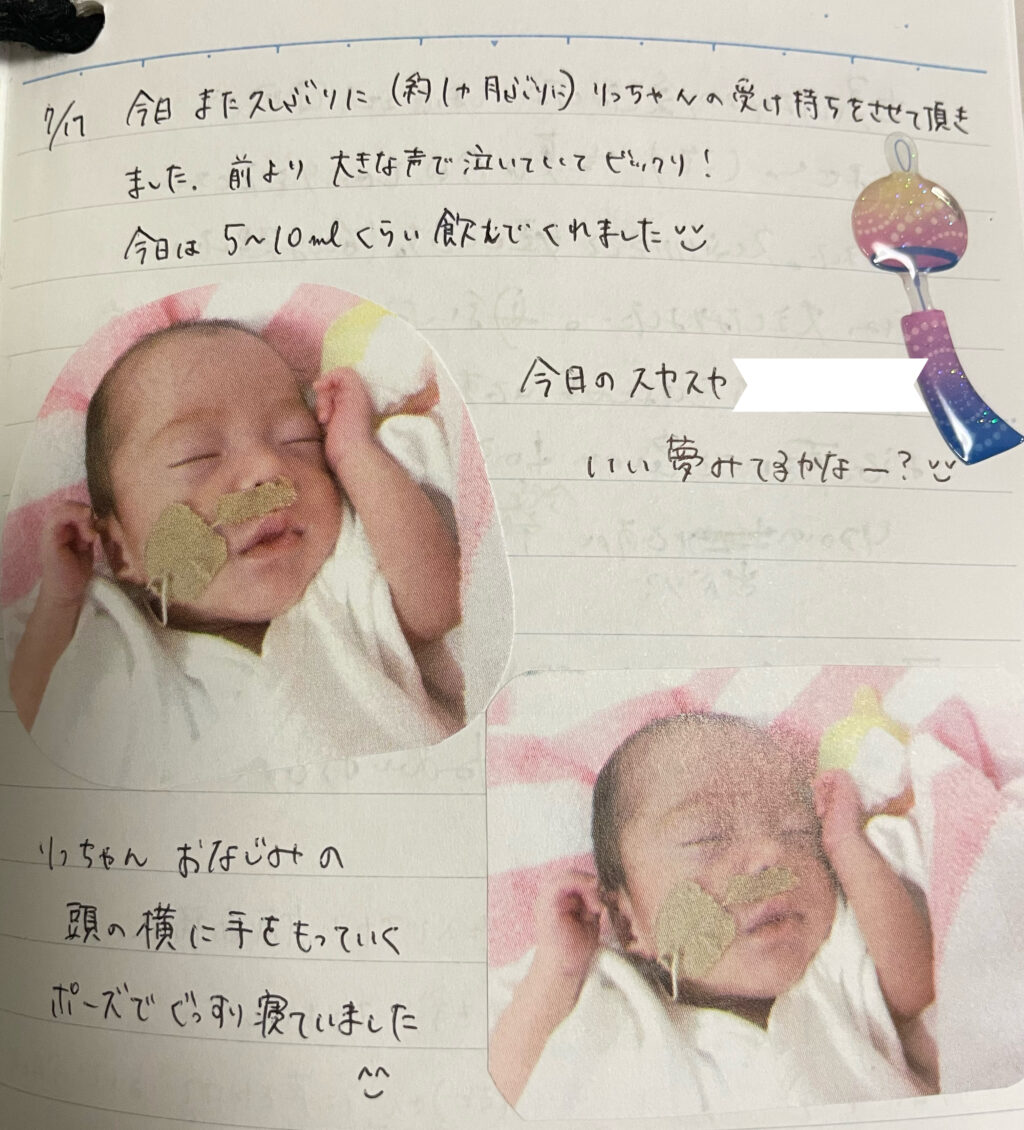 7/17 今日 また久しぶりに (約1ヶ月ぶりに) りっちゃんの受け持ちをさせて頂き
ました. 前より 大きな声で泣いていて ビックリ!
今日は 5~10mlくらい飲んでくれました
今日のスヤスヤ
いい夢みてるかなー?
りっちゃん おなじみの
頭の横に手をもっていく
ポーズでぐっすり寝ていました